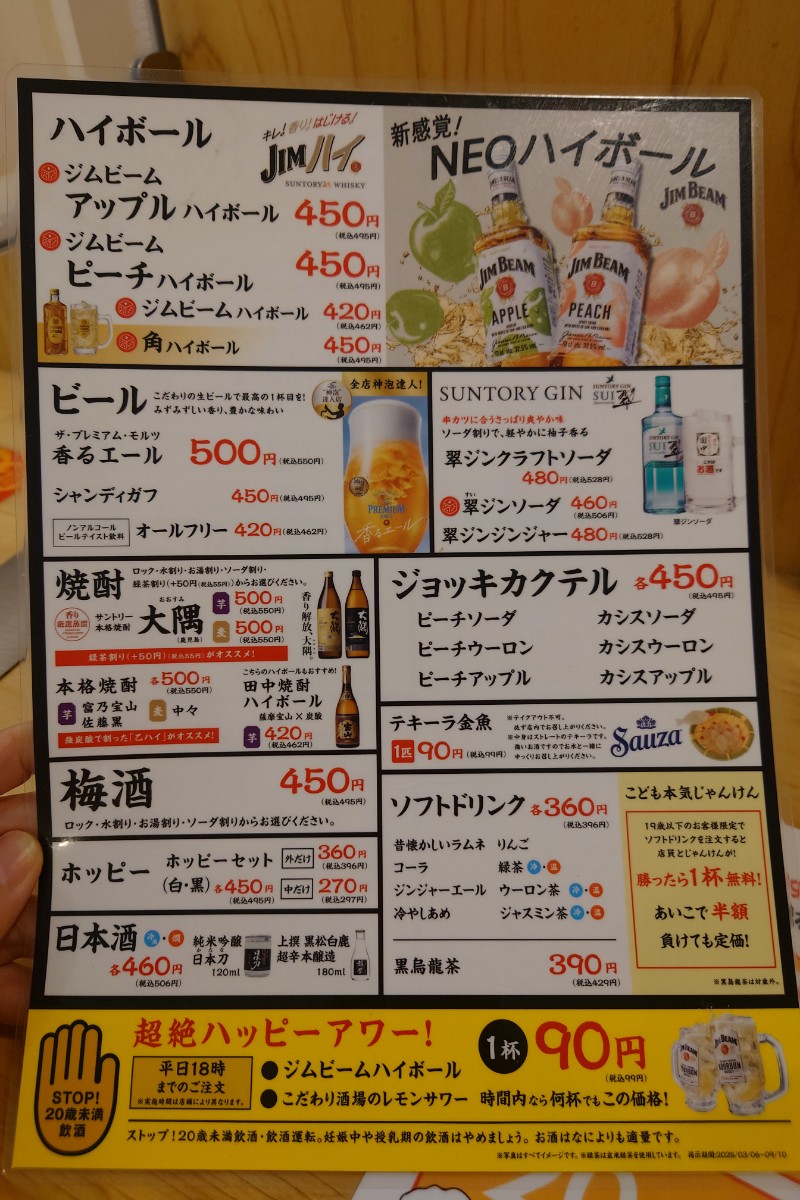 ハイボール
キレ!香り!はじける!
JIMハイ
SUNTORY WHISKY
ジムビーム
アップルハイボール 450円
(税込495円)
ジムビーム
ピーチハイボール 450円
(税込495円)
ジムビームハイボール 420円
(税込462円)
角ハイボール 450円
(税込495円)
新感覚!
NEOハイボール
JIM BEAM
JIM BEAM
APPLE
JIM BEAM
PEACH
ビール
こだわりの生ビールで最高の1杯目を!
みずみずしい香り、豊かな味わい
全店神泡達人!
神泡
達人店
ザ・プレミアム・モルツ
香るエール 500円(税込550円)
シャンディガフ 450円(税込495円)
ノンアルコール
ビールテイスト飲料
オールフリー 420円(税込462円)
PREMIUM
香るエール
SUNTORY GIN
SUNTORY GIN
SUI 翠
串カツに合うさっぱり爽やか味
ソーダ割りで、軽やかに柚子香る
翠ジンクラフトソーダ
480円(税込528円)
すい
翠ジンソーダ 460円
(税込506円)
翠ジンジンジャー 480円(税込528円)
SUNTORY GIN
SUI 翠
田中
お酒です
翠ジンソーダ
焼酎
ロック・水割り・お湯割り・ソーダ割り・
緑茶割り(+50円(税込55円))からお選びください。
香り
厳選蒸溜
サントリー
本格焼酎
おおすみ
大隅
(鹿児島)
芋 500円
(税込550円)
麦 500円
(税込550円)
香り解放、大隅。
緑茶割り(+50円)(税込55円)がオススメ!
本格焼酎 各500円
(税込550円)
芋 富乃宝山
佐藤黒
麦 中々
強炭酸で割った「乙ハイ」がオススメ!
こちらのハイボールもおすすめ!
田中焼酎
ハイボール
薩摩宝山×炭酸
芋 420円
(税込462円)
ジョッキカクテル 各450円
(税込495円)
ピーチソーダ カシスソーダ
ピーチウーロン カシスウーロン
ピーチアップル カシスアップル
テキーラ金魚
1匹 90円(税込99円)
※テイクアウト不可。
必ず店内でお召し上がりください。
※中身はストレートのテキーラです。
強いお酒ですのでお水と一緒に
ゆっくりお召し上がりください。
Sauza
梅酒 450円
(税込495円)
ロック・水割り・お湯割り・ソーダ割りからお選びください。
ホッピー
ホッピーセット
(白・黒) 各450円
(税込495円)
外だけ 360円
(税込396円)
中だけ 270円
(税込297円)
日本酒 冷・燗
各460円
(税込506円)
純米吟醸
かたな
日本刀
120ml
上撰 黒松白鹿
超辛本醸造
180ml
ソフトドリンク 各360円
(税込396円)
昔懐かしいラムネ りんご
コーラ 緑茶 冷・温
ジンジャーエール ウーロン茶 冷・温
冷やしあめ ジャスミン茶 冷・温
黒烏龍茶 390円
(税込429円)
こども本気じゃんけん
19歳以下のお客様限定で
ソフトドリンクを注文すると
店員とじゃんけんが!
勝ったら1杯無料!
あいこで半額
負けても定価!
※黒烏龍茶は対象外。
STOP!
20歳未満
飲酒
超絶ハッピーアワー!
平日18時
までのご注文
※実施時間は店舗により異なります。
●ジムビームハイボール
●こだわり酒場のレモンサワー
1杯 90円
(税込99円)
時間内なら何杯でもこの価格!
JIM BEAM
BOURBON
ストップ!20歳未満飲酒・飲酒運転。妊娠中や授乳期の飲酒はやめましょう。お酒はなによりも適量です。
※写真はすべてイメージです。※緑茶は宜池緑茶を使用しています。 掲示期間:2025/03/06-09/10